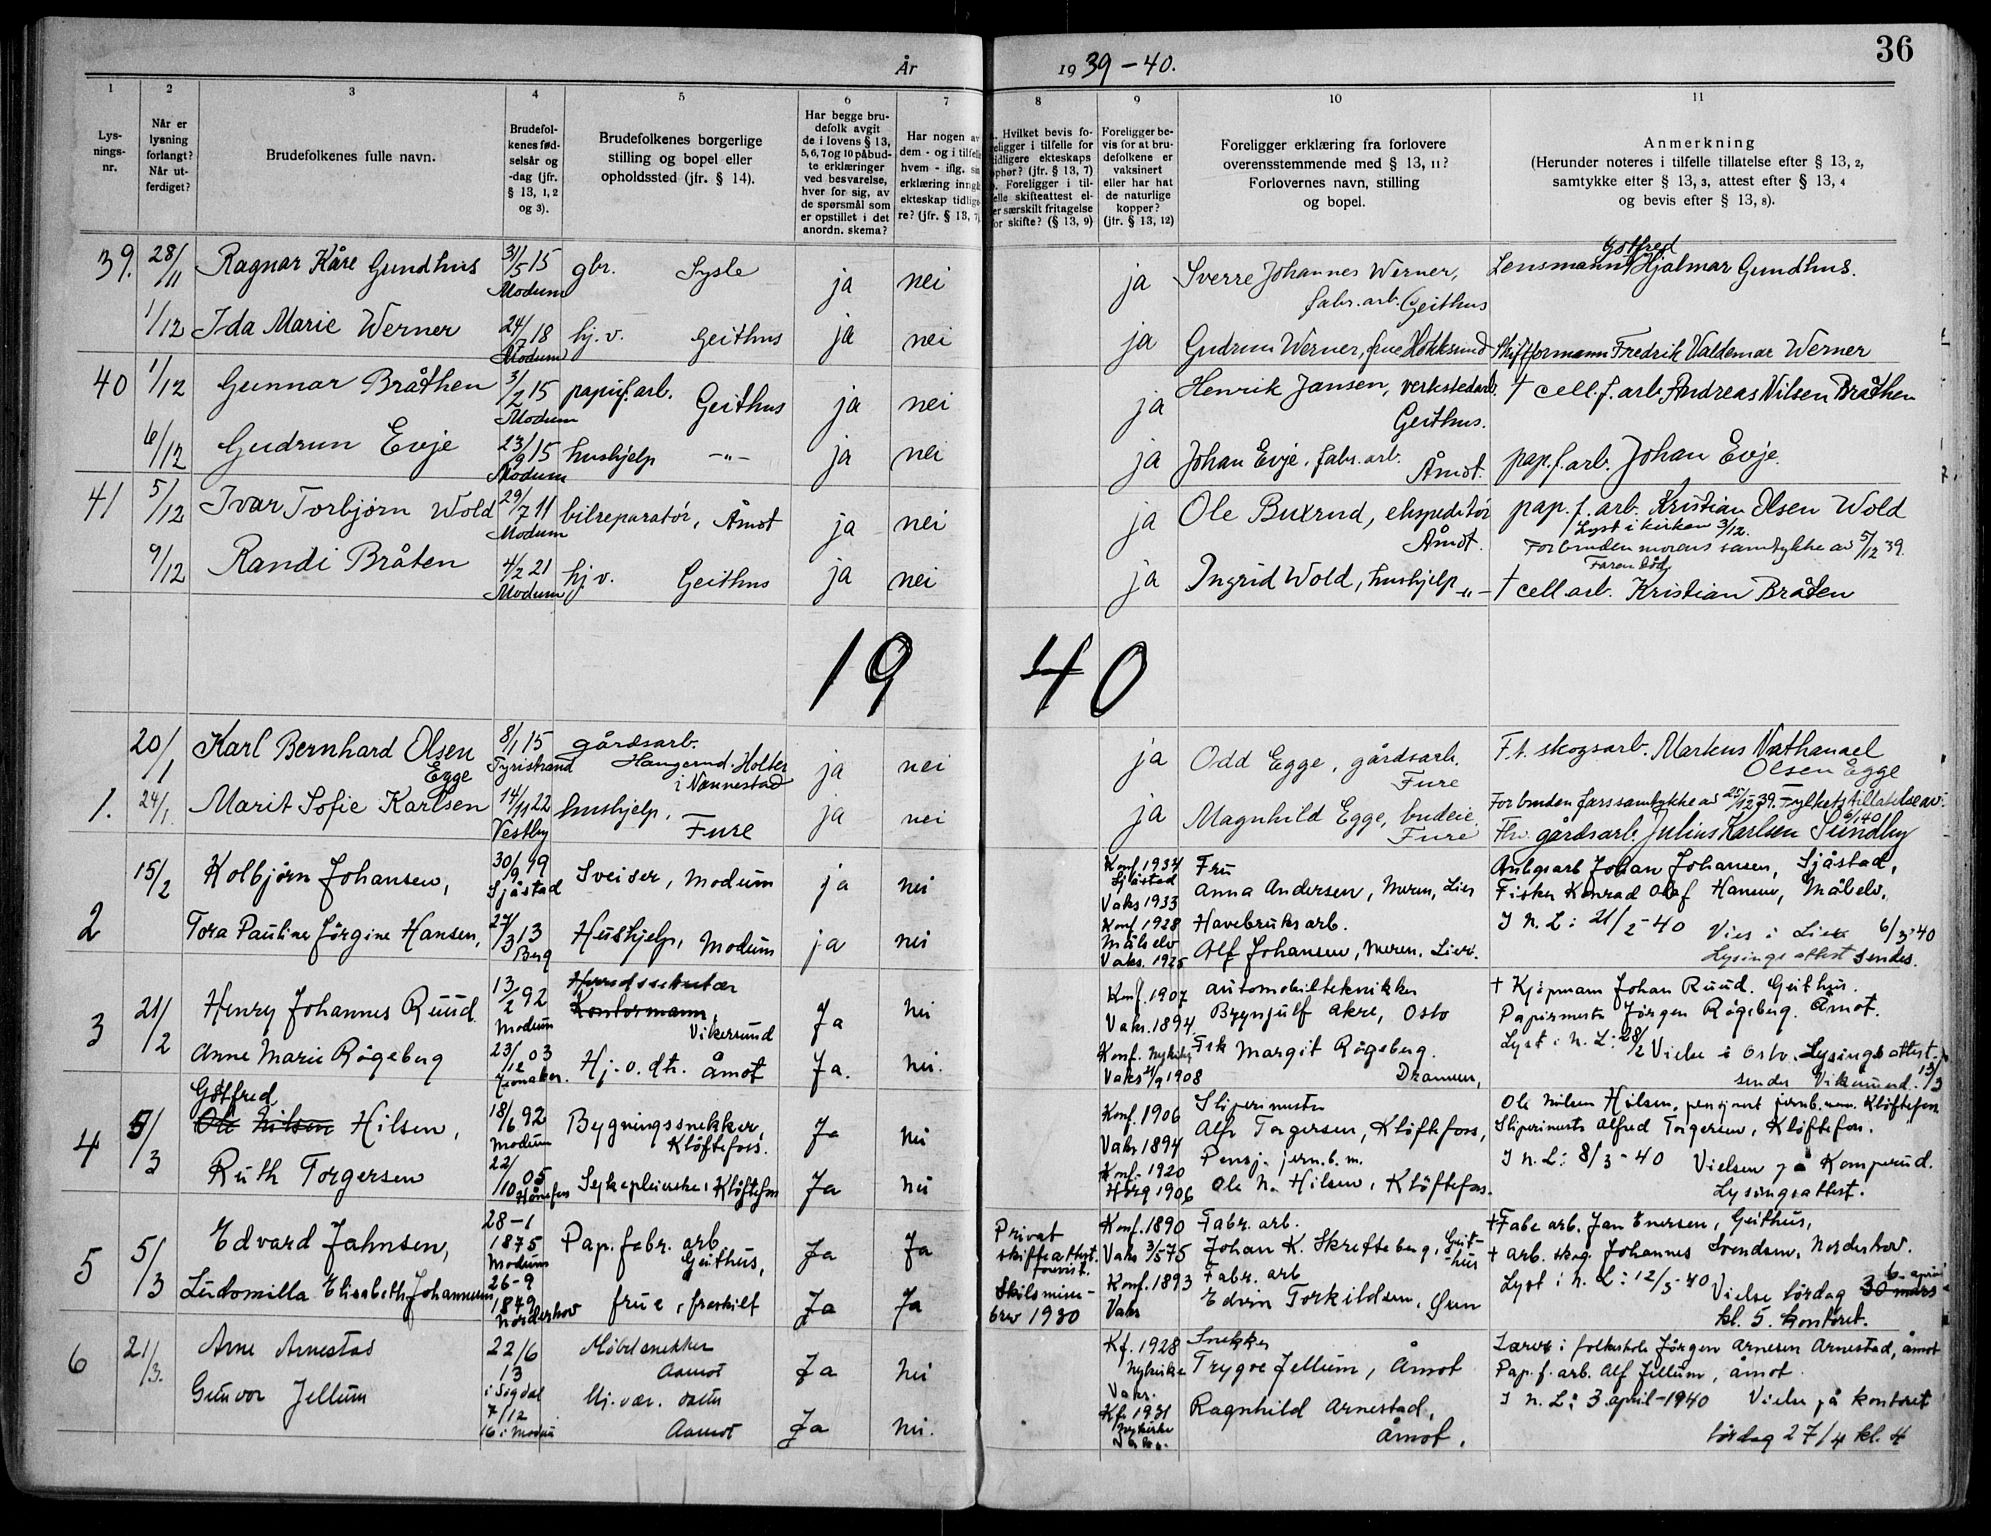 36
År 1939-40.
1 2 3 4 5 6 7 8 9 10 11
Lys-
nings-
nr.
Når er
lysning
forlangt?
Når ut-
ferdiget?
Brudefolkenes fulle navn.
Brudefol-
kenes fød-
selsår og
-dag (jfr.
§ 13, 1, 2
og 3).
Brudefolkenes borgerlige
stilling og bopel eller
opholdssted (jfr. § 14).
Har begge bru-
defolk avgit
de i lovens § 13,
5, 6, 7 og 10 påbud-
te erklæringer
ved besvarelse,
hver for sig, av
de spørsmål som
er opstillet i det
anordn. skema?
Har nogen av
dem - og i tilfelle
hvem - iflg. sin
erklæring inngå
ekteskap tidlige-
re? (jfr. § 13, 7)
Hvilket bevis fo-
religger i tilfelle for
tidligere ekteskaps
ophør? (jfr. § 13, 7)
Foreligger i til-
felle skifteattest el-
er særskilt fritagelse
or skifte? (§ 13, 9)
Foreligger be-
vis for at bru-
defolkene er
vaksinert
eller har hat
de naturlige
kopper?
(jfr. § 13, 12)
Foreligger erklæring fra forlovere
overensstemmende med § 13, 11?
Forlovernes navn, stilling
og bopel.
Anmerkning
(Herunder noteres i tilfelle tillatelse efter § 13, 2,
samtykke efter § 13, 3, attest efter § 13, 4
og bevis efter § 13, 8).
39. 28/11 Ragnar Kåre Gundhus 31/5 15 Modum gbr. Sysle ja nei ja Sverre Johannes Werner, fabr. arb. Geithus Lensmann Gotfred Hjalmar Gundhus.
1/12 Ida Marie Werner 24/7 18 Modum hj. v. Geithus ja nei ja Gudrun Werner, frue Hokksund Skiftformann Fredrik Valdemar Werner
40 1/12 Gunnar Bråthen 3/2 15 Modum papirf. arb. Geithus ja nei ja Henrik Jansen, verkstedarb. Geithus. † cell. f. arb. Andreas Nilsen Bråthen
6/12 Gudrun Evje 23/9 15 Modum hushjelp -"- ja nei ja Johan Evje, fabr. arb. Åmot. pap. f. arb. Johan Evje.
41 5/12 Ivar Torbjørn Wold 29/7 11 Modum bilreparatør, Åmot ja nei ja Ole Buxrud, ekspeditør Åmot. pap. f. arb. Kristian Olsen Wold
Lyst i kirken 3/12.
For bruden morens samtykke av 5/12 39.
Faren død
9/12 Randi Bråten 4/2 21 Modum hj v. Geithus ja nei ja Ingrid Wold, hushjelp -"- † cell arb. Kristian Bråten
1940
1. 20/1 Karl Bernhard Olsen Egge 8/1 15 Tyristrand gårdsarb. Haugerud. Holter i Nannestad ja nei ja Odd Egge, gårdsarb. Fure F. t. skogsarb. Markus Nathanael Olsen Egge
24/1. Marit Sofie Karlsen 14/11 22 Vestby hushjelp, Fure ja nei ja Magnhild Egge, budeie. Fure For bruden fars samtykke av 25/12 39. Fylkets tillatelse av 6/1 40
gårdsarb. Julius Karlsen Sundby
2 15/2 Kolbjørn Johansen, 30/9 99 Sjåstad Sveiser, Modum ja nei Konf. 1934 Sjåstad Vaks 1933 Fru Anna Andersen, Meren, Lier Anlgsarb Johan Johansen, Sjåstad,
Tora Pauline Jörgine Hansen, 27/3 13 Berg Hushjelp, Modum ja nei Konf. 1928 Målselv Vaks. 1925 Havebruksarb. Alf Johansen, Meren, Lier. Fisker Konrad Olaf Hansen, Målselv,
I N. L: 21/2-40 Vies i Lier 6/3-40
Lysings attest sendes.
3 21/2 Henry Johannes Ruud 13/2 92 Modum Herredssekretær Kontormann, Vikersund Ja nei Konf. 1907 Vaks. 1894 automobiltekniker Brynjulf Akre, Oslo † Kjöpmann Johan Ruud. Geithus.
Anne Marie Rögeberg 23/12 03 Hj. o. dtr. Åmot Ja. nei. Konf. Nykirke Vaks 4/9 1908 Frk Margit Rögeberg. Drammen, Papirmester Jörgen Rögeberg. Åmot.
Lyst i N. L: 28/2 Vielse i Oslo. Lysings attest.
sendes Vikersund. 13/3
4 5/3 Götfred Ole Nilsen Hilsen, 18/6 92 Modum Bygningssnekker, Klöftefoss. Ja nei Konf. 1906 Vaks 1894 Sliperimester Alfr Torgersen, Klöftefoss, Ole Nilsen Hilsen, pensjonert jernb. mn. Klöftefoss
Ruth Torgersen 22/10 05 Hönefoss Sykepleierske, Klöftefoss Ja nei Konf. 1920 Hörg 1906 Pensj. jern. b. m. Ole N. Hilsen, Klöftefoss. Sliperimestr Alfred Torgersen, Klöftefoss.
I N. L: 8/3-40 Vielsen på Komperud.
Lysingsattest.
5 5/3 Edvard Jahnsen, 28-1 1875 Modum Pap. fabr. arb Geithus, Ja Ja Privat skifteattest. forevist. Konf. 1890 Vaks 3/5 75 Fabr. arb. Johan K. Skrefteberg, Geithus † Fabr arb. Jan Enersen, Geithus,
Ludomilla Elisabeth Johannesen 26-9 1879 Norderhov frue, fraskilt Ja Ja Skilsmisse- brev 1930 Konf. 1893 Vaks Fabr. arb Edvin Torkildsen, Gren † arb. skog. Johannes Svendsen, Norderhov.
Lyst i N. L: 12/3-40 Vielse lördag 30 mars 6. april
kl. 5. kontoret.
6 21/3. Arne Arnestad 22/6 13 i Sigdal Möbelsnekker Aamot Ja nei Kf. 1928 Nykirke Vaks. Snekker Trygve Jellum, Åmot Lærer i folkeskole Jörgen Arnesen Arnestad, åmot
Gunvor Jellum 7/12 16 i Modum Hj. vær. datter Aamot Ja nei. Kf. 1931 Nykirke Ragnhild Arnestad, Åmot. Pap. f. arb. Alf Jellum, åmot.
I N. L: 3 april-1940 Vielse på kontoret
lördag 27/4 kl. 4